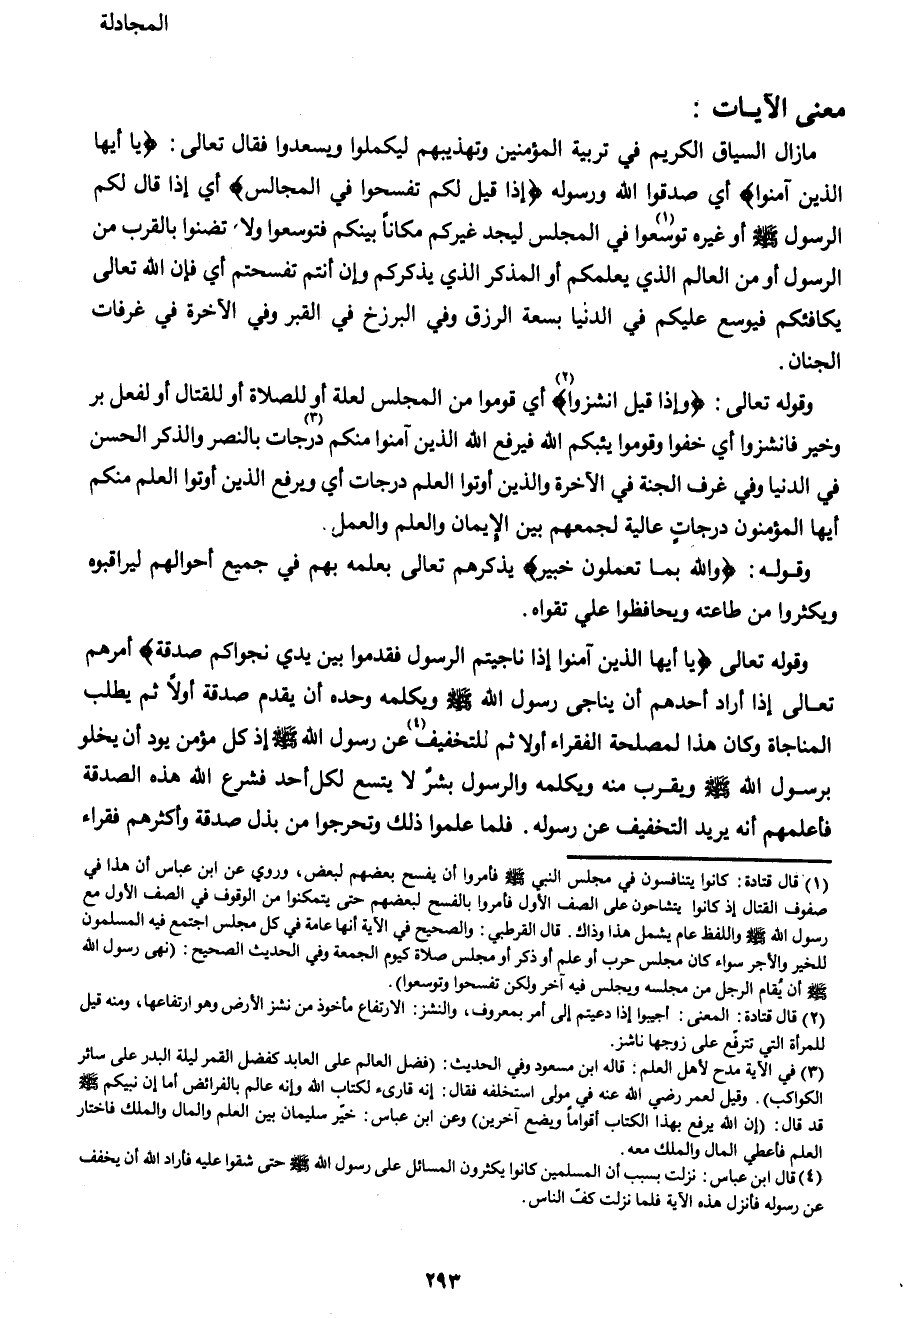 المجادلة
معنى الآيـات :
مازال السياق الكريم في تربية المؤمنين وتهذيبهم ليكملوا ويسعدوا فقال تعالى : ﴿يا أيها
الذين آمنوا﴾ أي صدقوا الله ورسوله ﴿إذا قيل لكم تفسحوا في المجالس﴾ أي إذا قال لكم
الرسول ﷺ أو غيره توسعوا(١) في المجلس ليجد غيركم مكاناً بينكم فتوسعوا ولا تضنوا بالقرب من
الرسول أو من العالم الذي يعلمكم أو المذكر الذي يذكركم وإن أنتم تفسحتم أي فإن الله تعالى
يكافئكم فيوسع عليكم في الدنيا بسعة الرزق وفي البرزخ في القبر وفي الآخرة في غرفات
الجنان .
وقوله تعالى : ﴿وإذا قيل انشزوا﴾(٢) أي قوموا من المجلس لعلة أو للصلاة أو للقتال أو لفعل بر
وخير فانشزوا أي خفوا وقوموا يثبكم الله فيرفع الله الذين آمنوا منكم درجات(٣) بالنصر والذكر الحسن
في الدنيا وفي غرف الجنة في الآخرة والذين أوتوا العلم درجات أي ويرفع الذين أوتوا العلم منكم
أيها المؤمنون درجاتٍ عالية لجمعهم بين الإيمان والعلم والعمل .
وقـولـه : ﴿والله بمـا تعملون خبير﴾ يذكرهم تعالى بعلمه بهم في جميع أحوالهم ليراقبوه
ويكثروا من طاعته ويحافظوا علي تقواه .
وقوله تعالى ﴿يا أيها الذين آمنوا إذا ناجيتم الرسول فقدموا بين يدي نجواكم صدقة﴾ أمرهم
تعـالى إذا أراد أحدهم أن يناجى رسول الله ﷺ ويكلمه وحده أن يقدم صدقة أولاً ثم يطلب
المناجاة وكان هذا لمصلحة الفقراء أولا ثم للتخفيف(٤) عن رسول الله ﷺ إذ كل مؤمن يود أن يخلو
برسـول الله ﷺ ويقـرب منه ويكلمه والرسول بشرٌ لا يتسع لكل أحد فشرع الله هذه الصدقة
فأعلمهم أنه يريد التخفيف عن رسوله . فلما علموا ذلك وتحرجوا من بذل صدقة وأكثرهم فقراء
(١) قال قتادة : كانوا يتنافسون في مجلس النبي ﷺ فأمروا أن يفسح بعضهم لبعض، وروي عن ابن عباس أن هذا في
صفوف القتال إذ كانوا يتشاحون على الصف الأول فأمروا بالفسح لبعضهم حتى يتمكنوا من الوقوف في الصف الأول مع
رسول الله ﷺ واللفظ عام يشمل هذا وذاك . قال القرطبي : والصحيح في الآية أنها عامة في كل مجلس اجتمع فيه المسلمون
للخير والأجر سواء كان مجلس حرب أو علم أو ذكر أو مجلس صلاة كيوم الجمعة وفي الحديث الصحيح : (نهى رسول الله
ﷺ أن يُقام الرجل من مجلسه ويجلس فيه آخر ولكن تفسحوا وتوسعوا) .
(٢) قال قتادة : المعنى : أجيبوا إذا دعيتم إلى أمر بمعروف، والنشز: الارتفاع مأخوذ من نشز الأرض وهو ارتفاعها، ومنه قيل
للمرأة التي تترفّع على زوجها ناشز.
(٣) في الآية مدح لأهل العلم : قاله ابن مسعود وفي الحديث : (فضل العالم على العابد كفضل القمر ليلة البدر على سائر
الكواكب) . وقيل لعمر رضي الله عنه في مولى استخلفه فقال : إنه قارىء لكتاب الله وإنه عالم بالفرائض أما إن نبيكم ﷺ
قد قال : (إن الله يرفع بهذا الكتاب أقواماً ويضع آخرين) وعن ابن عباس : خيّر سليمان بين العلم والمال والملك فاختار
العلم فأعطي المال والملك معه .
(٤) قال ابن عباس : نزلت بسبب أن المسلمين كانوا يكثرون المسائل على رسول الله ﷺ حتى شقوا عليه فأراد الله أن يخفف
عن رسوله فأنزل هذه الآية فلما نزلت كفّ الناس .
٢٩٣